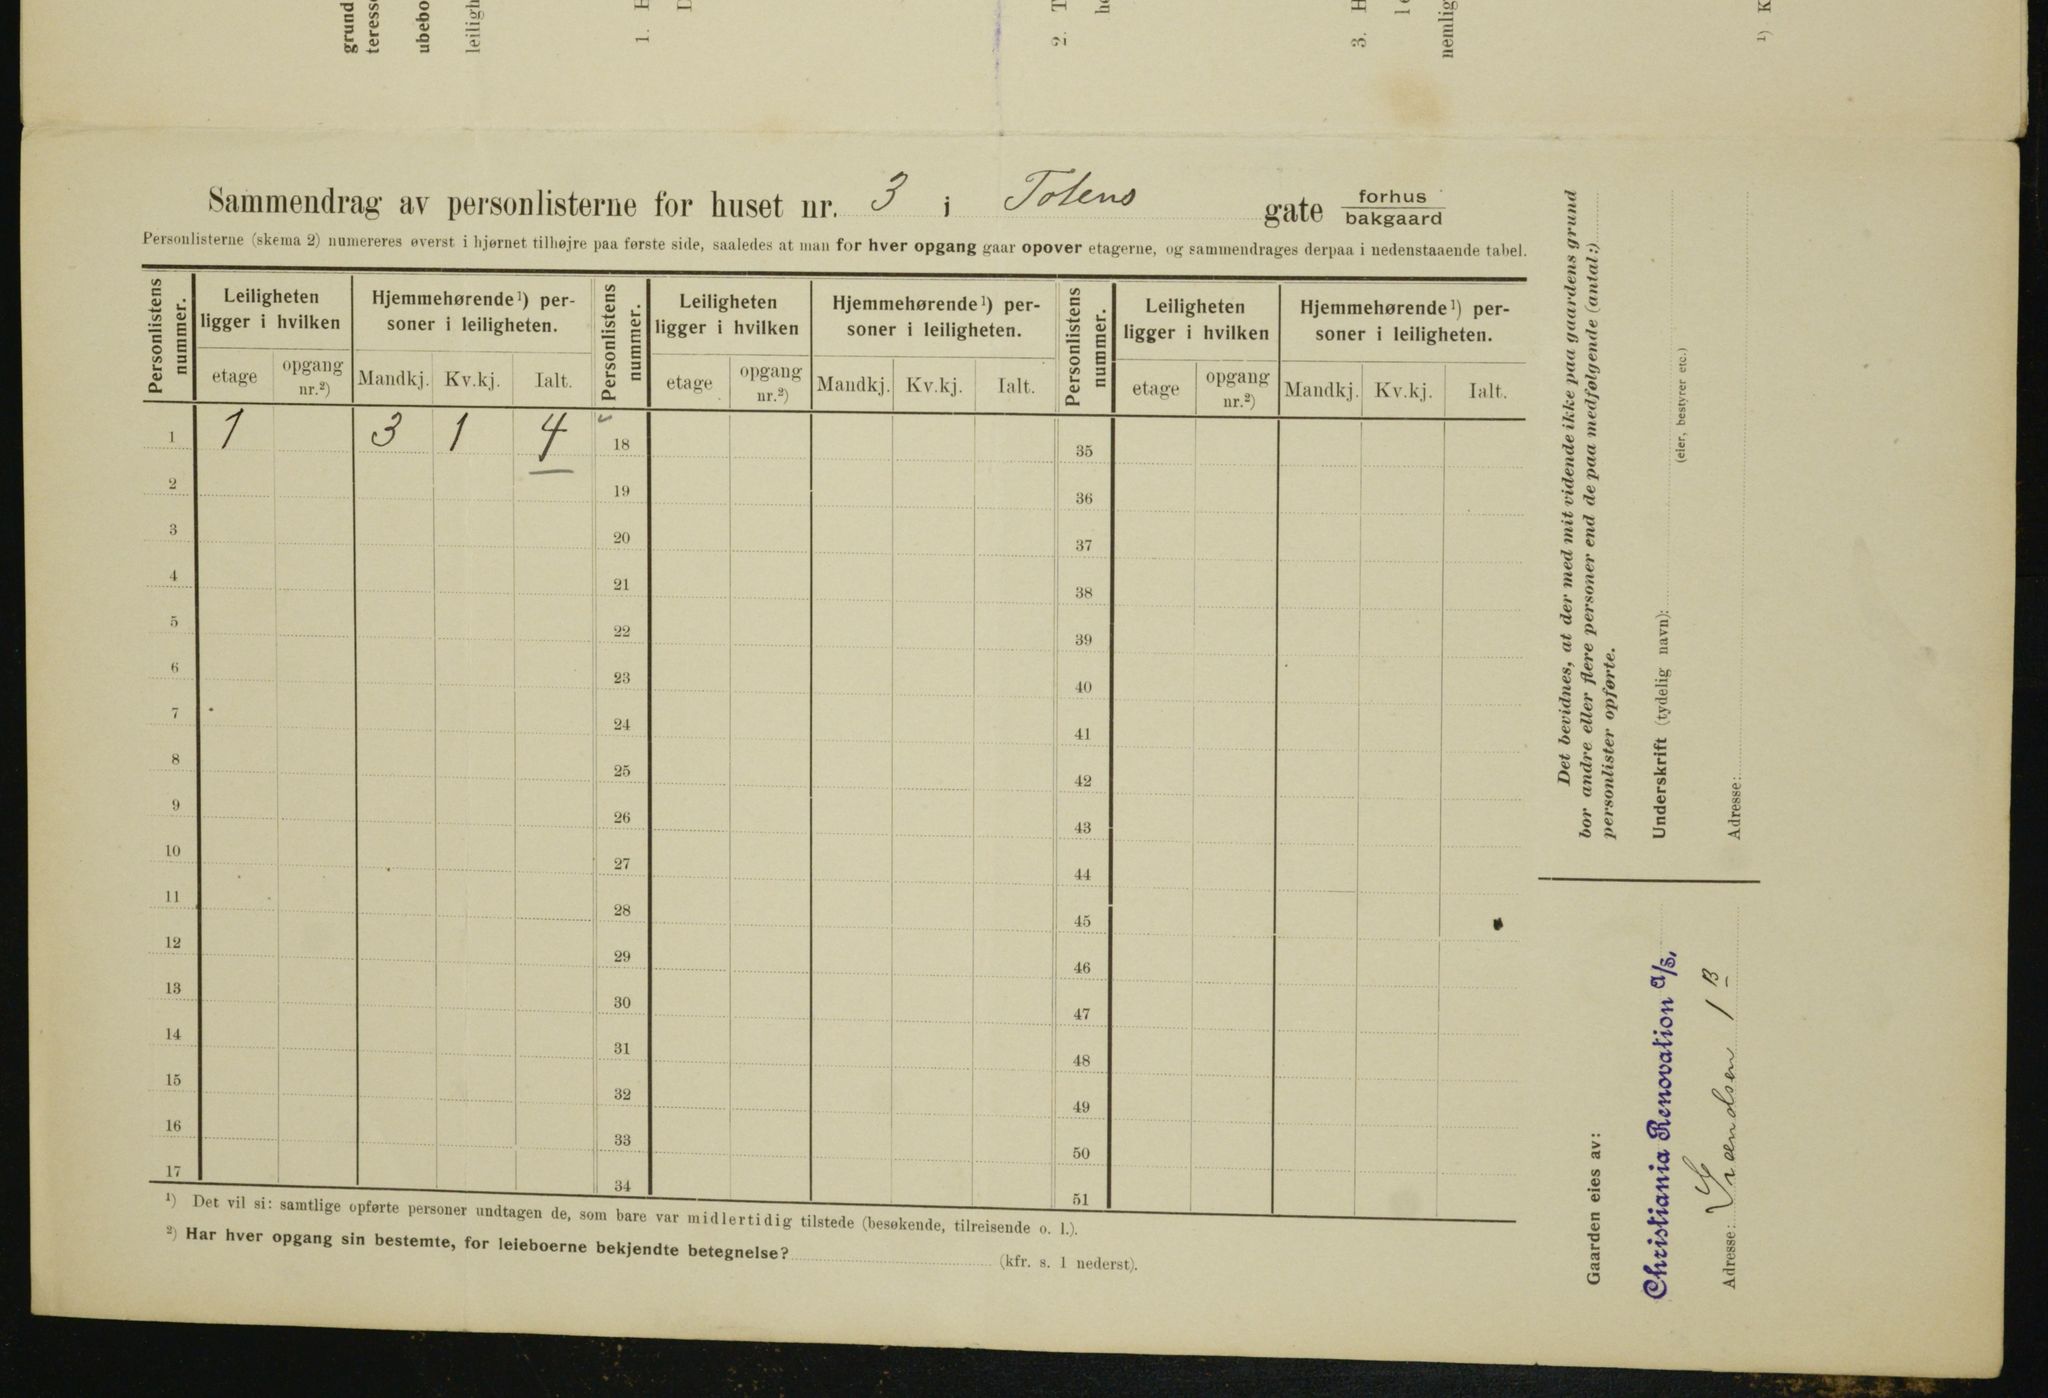 grund
teress
ubebo
leiligh
1. H
D
2. T
he
3. H
le
nemlig
1) K
Sammendrag av personlisterne for huset nr. 3 i Totens gate forhus
bakgaard
Personlisterne (skema 2) numereres øverst i hjørnet tilhøjre paa første side, saaledes at man for hver opgang gaar opover etagerne, og sammendrages derpaa i nedenstaaende tabel.
Personlistens nummer. Leiligheten ligger i hvilken Hjemmehørende 1) personer i leiligheten. Personlistens nummer. Leiligheten ligger i hvilken Hjemmehørende 1) personer i leiligheten. Personlistens nummer. Leiligheten ligger i hvilken Hjemmehørende 1) personer i leiligheten.
etage opgang nr.2) Mandkj. Kv.kj. Ialt. etage opgang nr.2) Mandkj. Kv.kj. Ialt. etage opgang nr.2) Mandkj. Kv.kj. Ialt.
1 1 3 1 4 18 35
2 19 36
3 20 37
4 21 38
5 22 39
6 23 40
7 24 41
8 25 42
9 26 43
10 27 44
11 28 45
12 29 46
13 30 47
14 31 48
15 32 49
16 33 50
17 34 51
1) Det vil si: samtlige opførte personer undtagen de, som bare var midlertidig tilstede (besøkende, tilreisende o. l.).
2) Har hver opgang sin bestemte, for leieboerne bekjendte betegnelse? (kfr. s. 1 nederst).
Det bevidnes, at der med mit vidende ikke paa gaardens grund
bor andre eller flere personer end de paa medfølgende (antal:)
personlister opførte.
Underskrift (tydelig navn):
(eier, bestyrer etc.)
Adresse:
Gaarden eies av:
Christiania Renovation A/S.
Adresse: 1 B